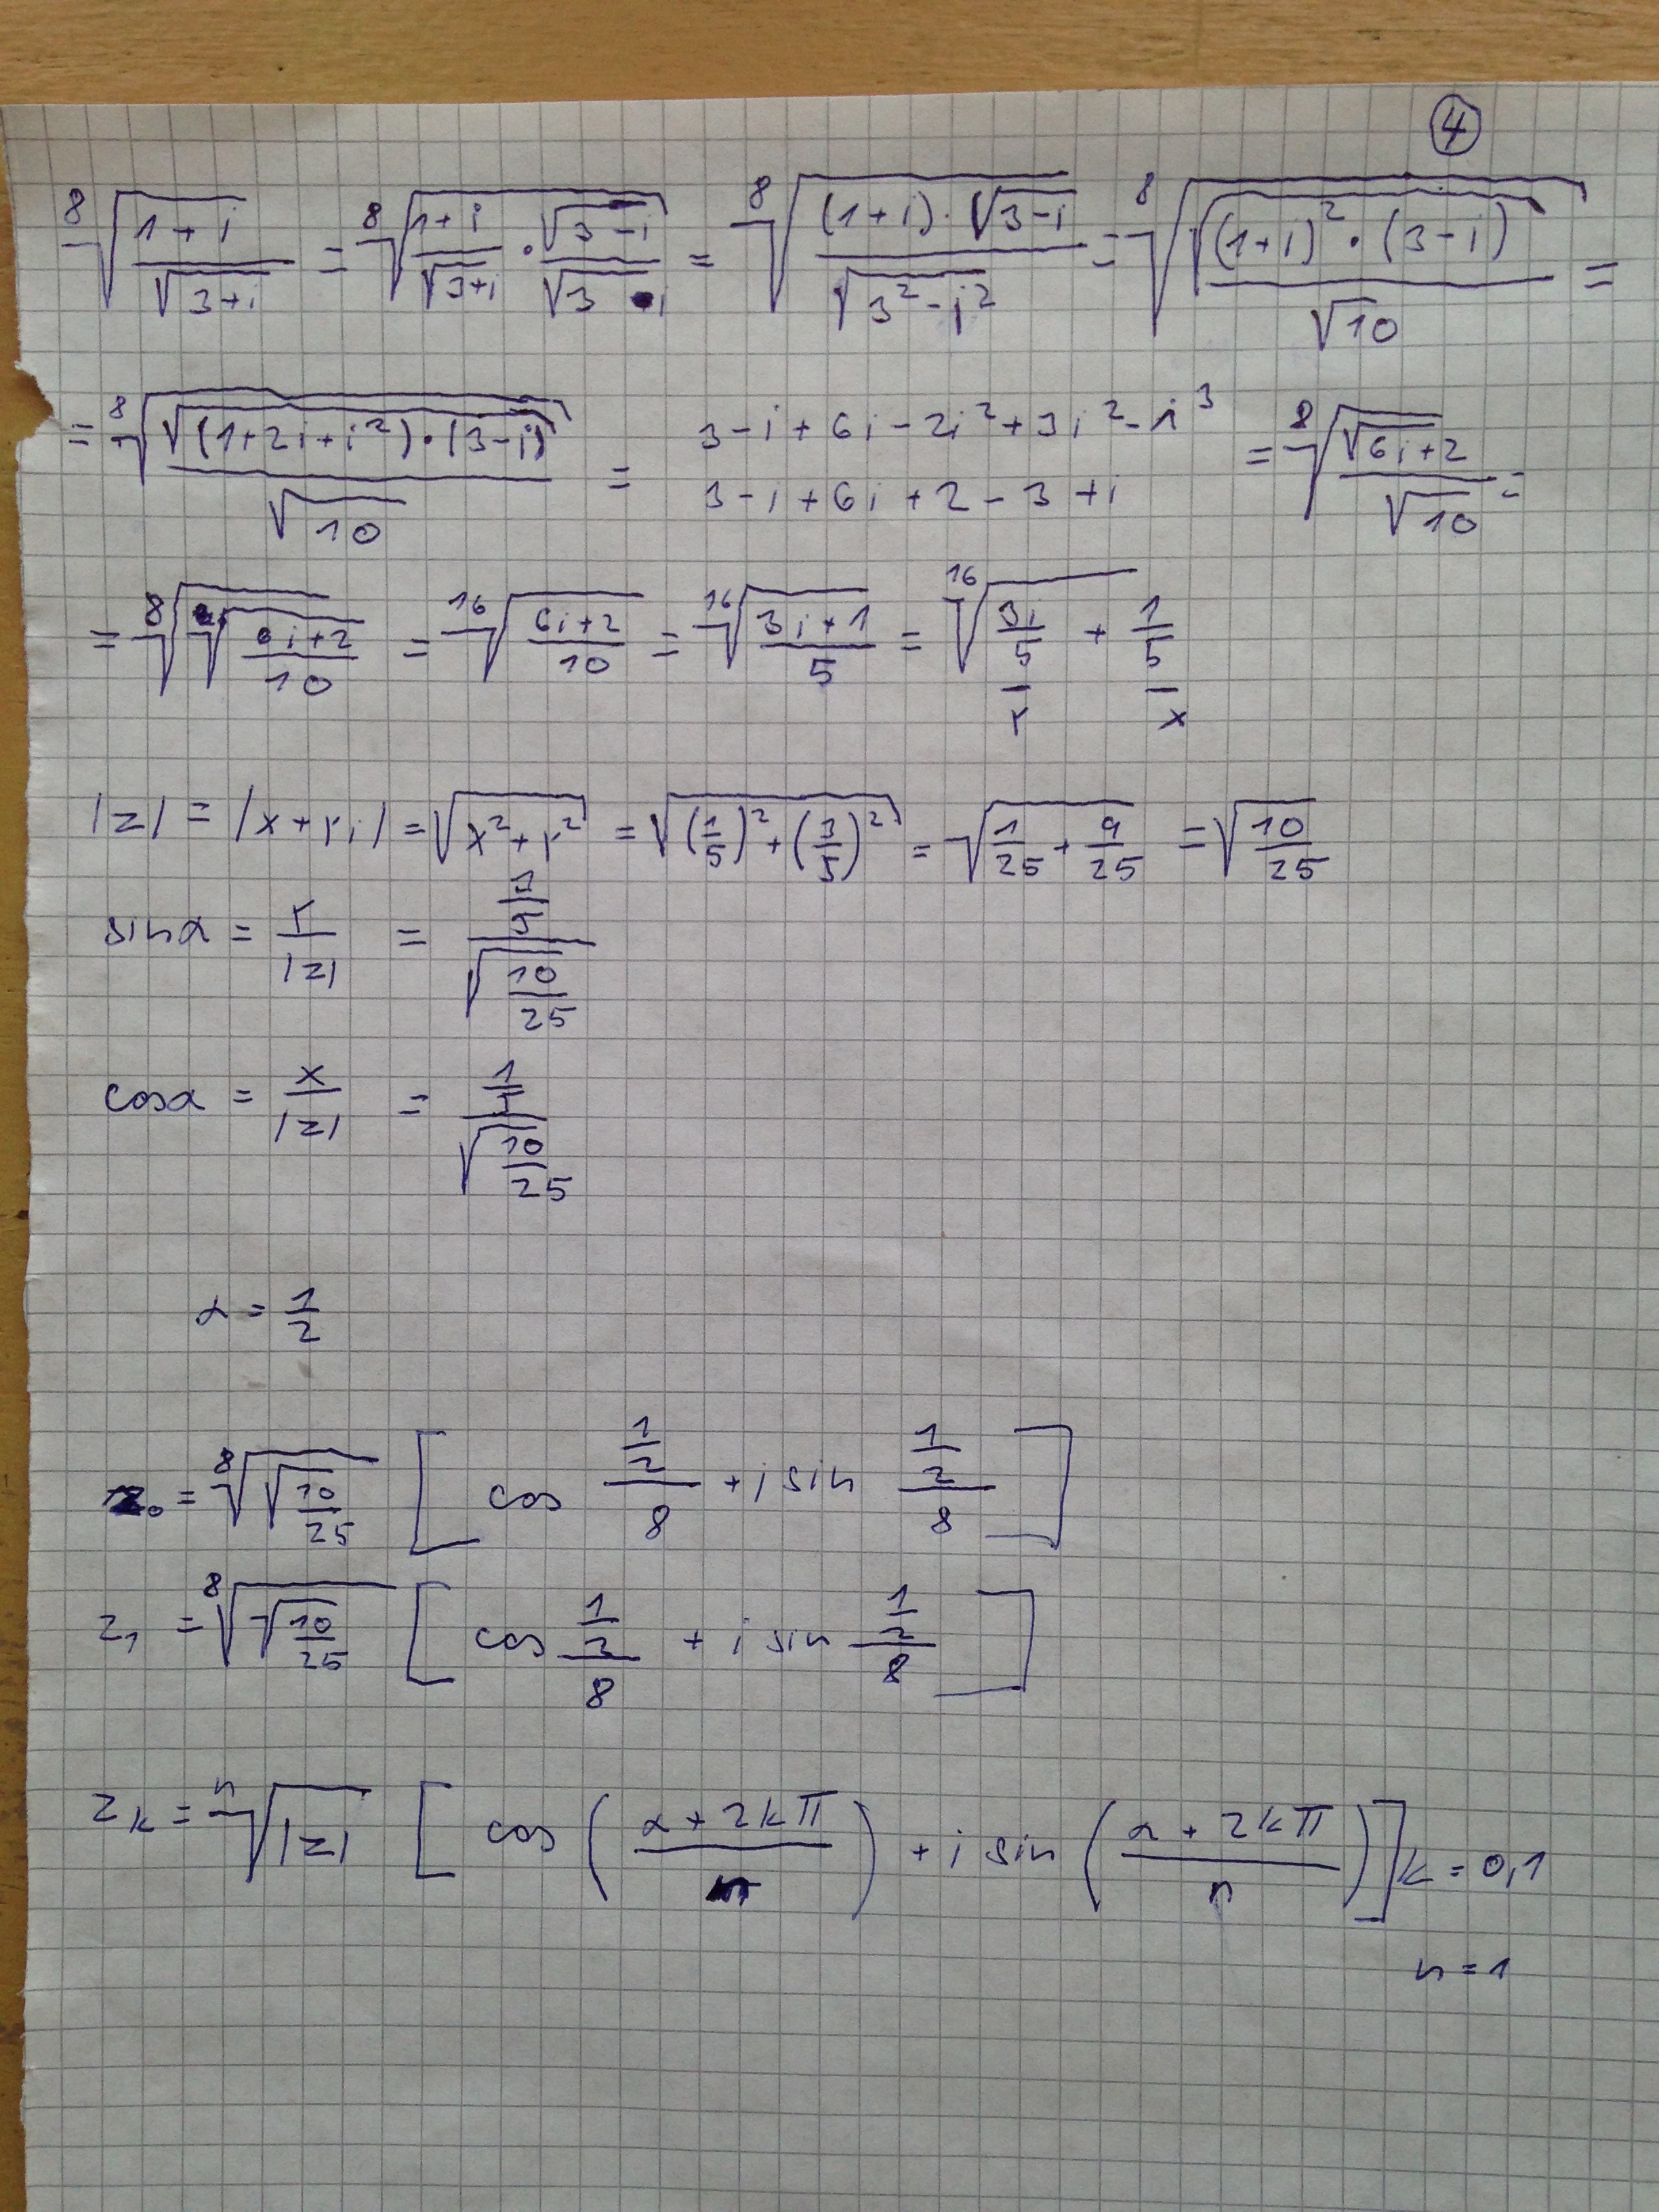 ④
⁸√((1+i)/√(3+i)) = ⁸√((1+i)/√(3+i) · √(3-i)/√(3-i)) = ⁸√((1+i)·√(3-i)/√(3²-i²)) = ⁸√(√((1+i)²·(3-i))/√10) =
= ⁸√(√((1+2i+i²)·(3-i))/√10) = 3-i+6i-2i²+3i²-i³ = ⁸√(√(6i+2)/√10) =
3-i+6i+2-3+i
= ⁸√(√((6i+2)/10)) = ¹⁶√((6i+2)/10) = ¹⁶√((3i+1)/5) = ¹⁶√(3i/5 + 1/5)
r x
|z| = |x+ri| = √(x²+r²) = √((1/5)²+(3/5)²) = √(1/25+9/25) = √(10/25)
sinα = r/|z| = (3/5)/√(10/25)
cosα = x/|z| = (1/5)/√(10/25)
α = 1/2
z₀ = ⁸√(√(10/25)) [cos (1/2)/8 + i sin (1/2)/8]
z₁ = ⁸√(√(10/25)) [cos (1/2)/8 + i sin (1/2)/8]
zₖ = ⁿ√|z| [cos((α+2kπ)/n) + i sin((α+2kπ)/n)] k=0,1
n=1